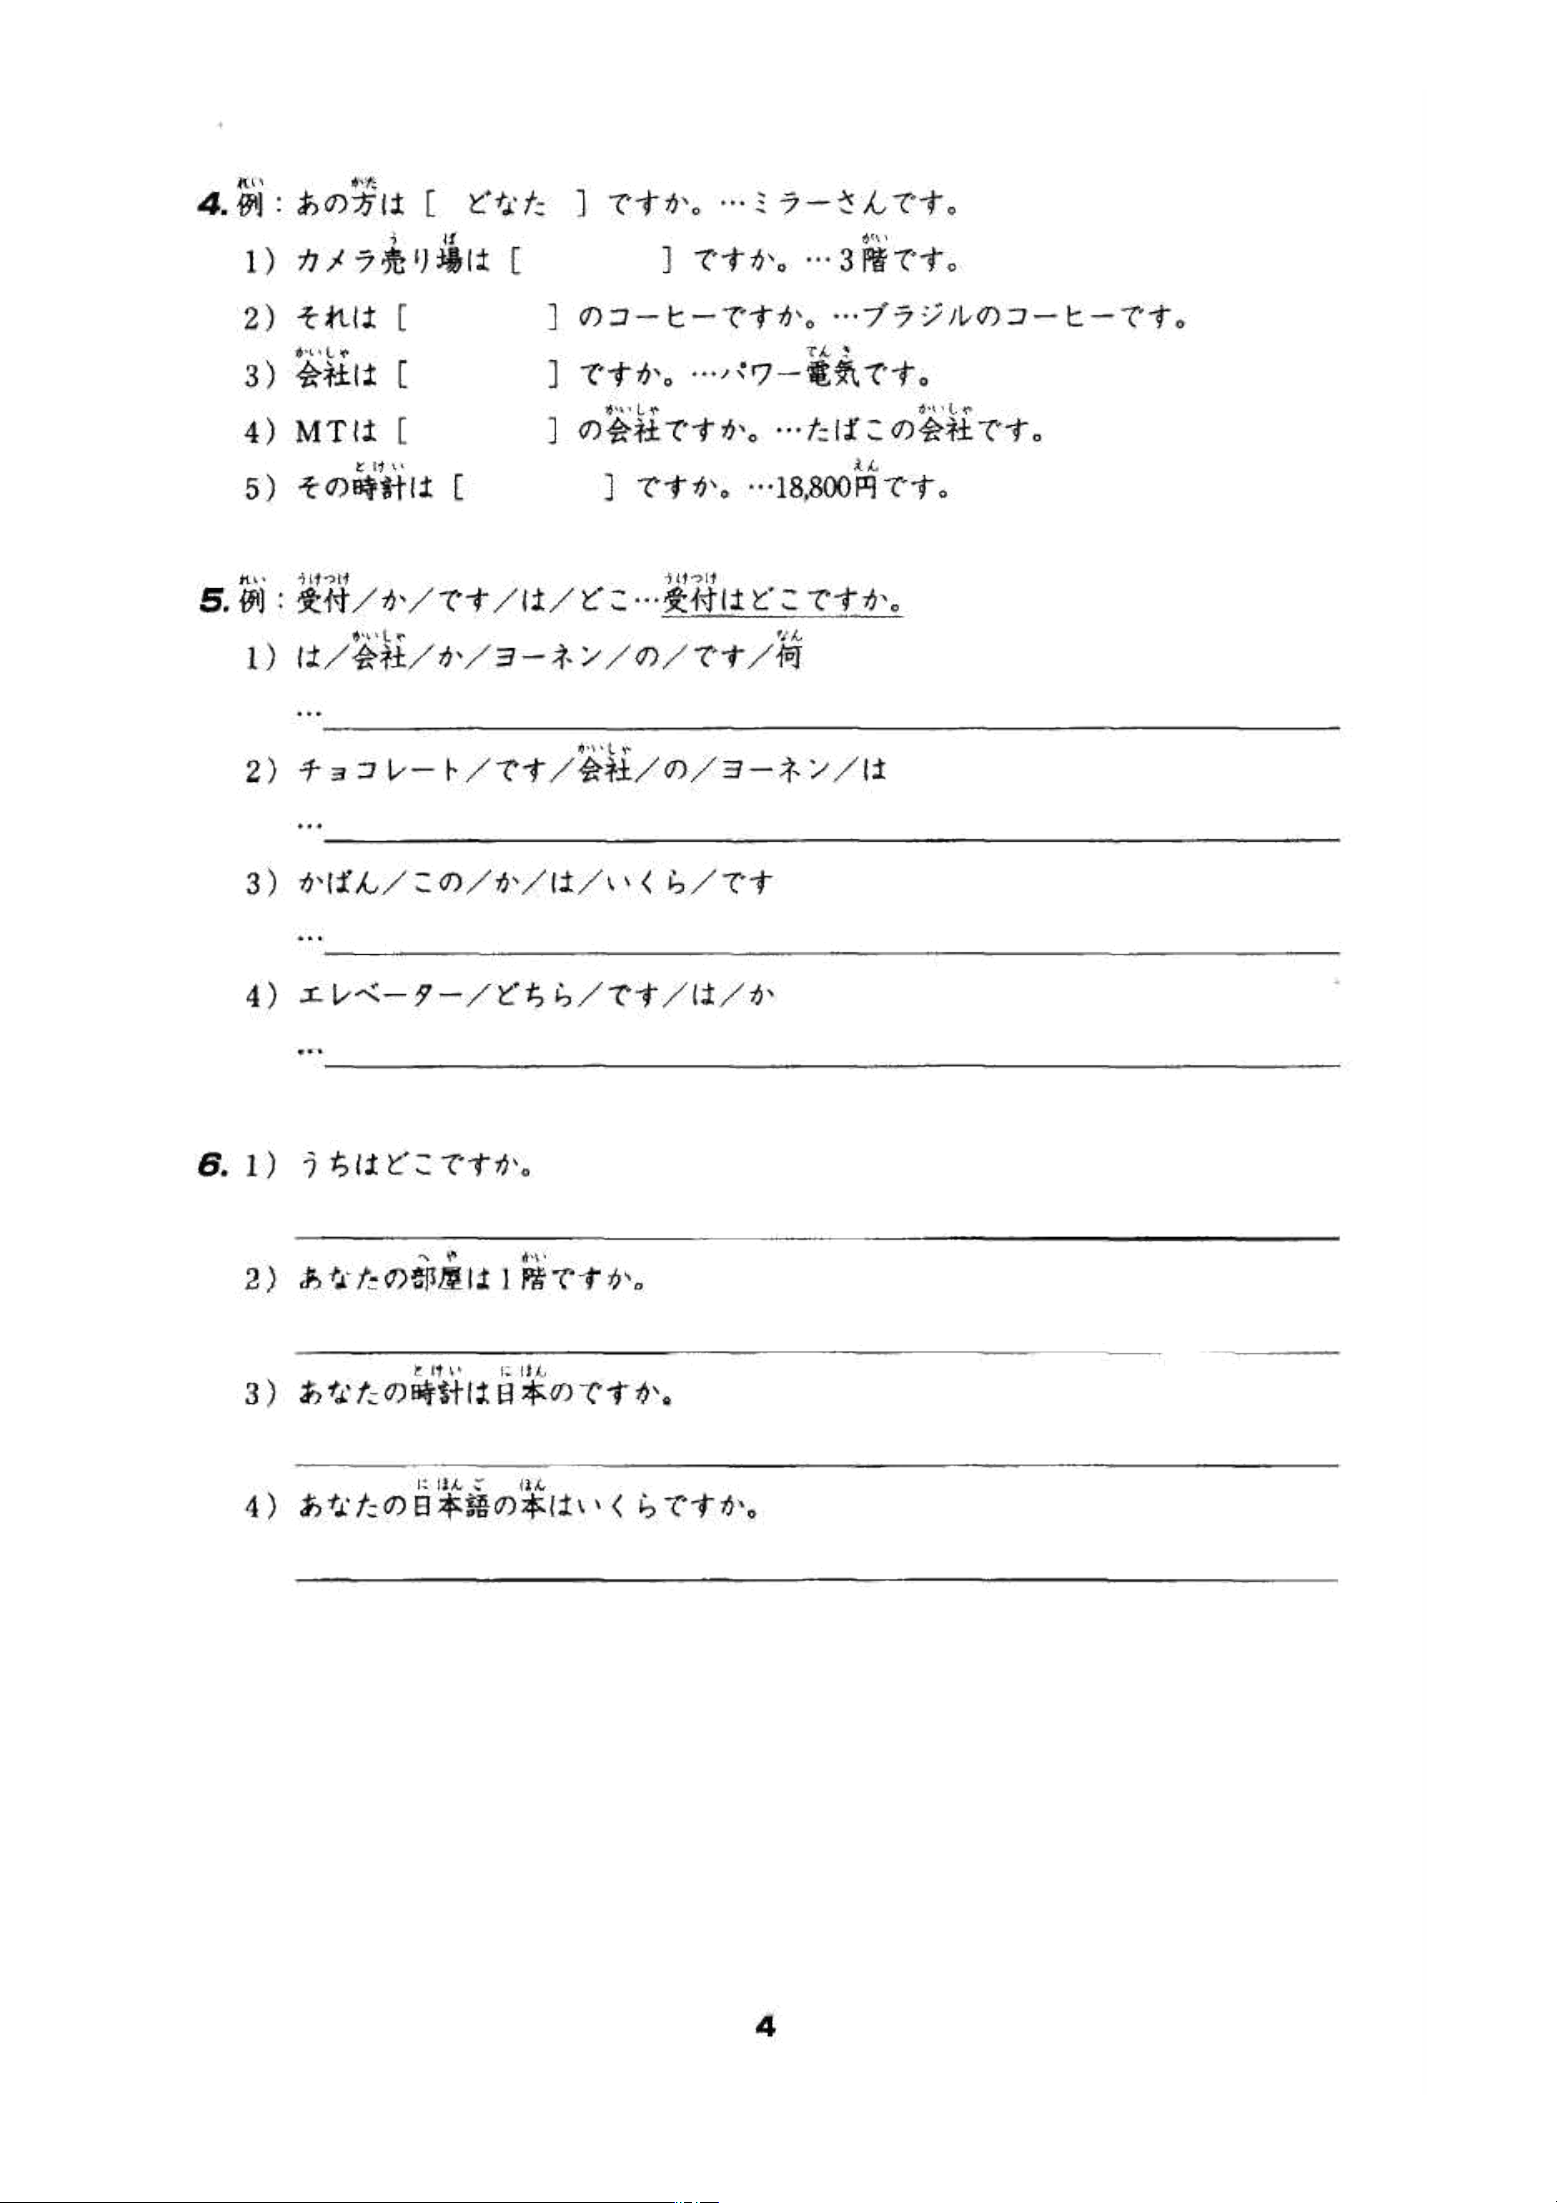 4. 例：あの方は［ どなた ］ですか。…ミラーさんです。
1）カメラ売り場は［　　　　］ですか。…3階です。
2）それは［　　　　］のコーヒーですか。…ブラジルのコーヒーです。
3）会社は［　　　　］ですか。…パワー電気です。
4）MTは［　　　　］の会社ですか。…たばこの会社です。
5）その時計は［　　　　］ですか。…18,800円です。
5. 例：受付／か／です／は／どこ…受付はどこですか。
1）は／会社／か／ヨーネン／の／です／何
…
2）チョコレート／です／会社／の／ヨーネン／は
…
3）かばん／この／か／は／いくら／です
…
4）エレベーター／どちら／です／は／か
…
6. 1）うちはどこですか。
2）あなたの部屋は1階ですか。
3）あなたの時計は日本のですか。
4）あなたの日本語の本はいくらですか。
4